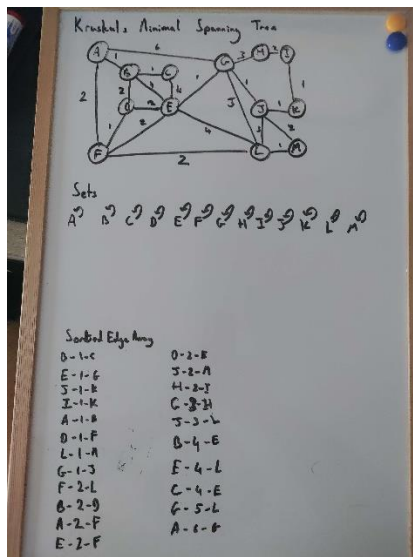 Kruskals Minimal Spanning Tree
A 6 G 3 H 2 I
1 B 1 C 1 1
2 2 4 4 1
D 2 E 5 J 1 K
1 2 4 3 2
F 2 L 1 M
Sets
A B C D E F G H I J K L M
Sorted Edge Array
B-1-C
E-1-G
J-1-K
I-1-K
A-1-B
D-1-F
L-1-M
G-1-J
F-2-L
B-2-D
A-2-F
E-2-F
D-2-E
J-2-M
H-2-I
G-3-H
J-3-L
B-4-E
E-4-L
C-4-E
G-5-L
A-6-G